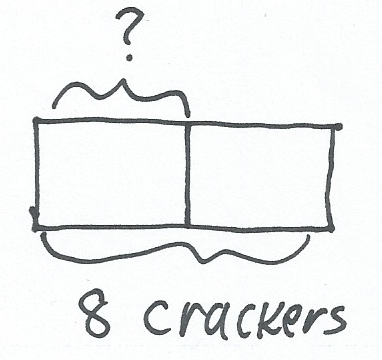 ?
8 crackers